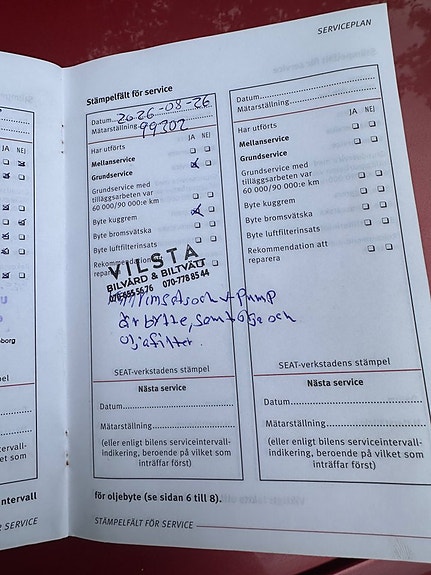 SERVICEPLAN
Stämpelfält för service
Datum 2026-08-26
Mätarställning 99202
JA NEJ
Har utförts
Mellanservice
Grundservice
Grundservice med
tilläggsarbeten var
60 000/90 000:e km
Byte kuggrem
Byte bromsvätska
Byte luftfilterinsats
Rekommendation att
reparera
VILSTA
BILVÅRD & BILTVÄTT
070-778 85 44
pump
är bytte, samt olje och
oljafilter.
SEAT-verkstadens stämpel
Nästa service
Datum
Mätarställning
(eller enligt bilens serviceintervall-
indikering, beroende på vilket som
inträffar först)
för oljebyte (se sidan 6 till 8).
STÄMPELFÄLT FÖR SERVICE
Datum
Mätarställning
JA NEJ
Har utförts
Mellanservice
Grundservice
Grundservice med
tilläggsarbeten var
60 000/90 000:e km
Byte kuggrem
Byte bromsvätska
Byte luftfilterinsats
Rekommendation att
reparera
SEAT-verkstadens stämpel
Nästa service
Datum
Mätarställning
(eller enligt bilens serviceintervall-
indikering, beroende på vilket som
inträffar först)
JA NEJ
borg
viceintervall-
vilket som
ntervall
SERVICE